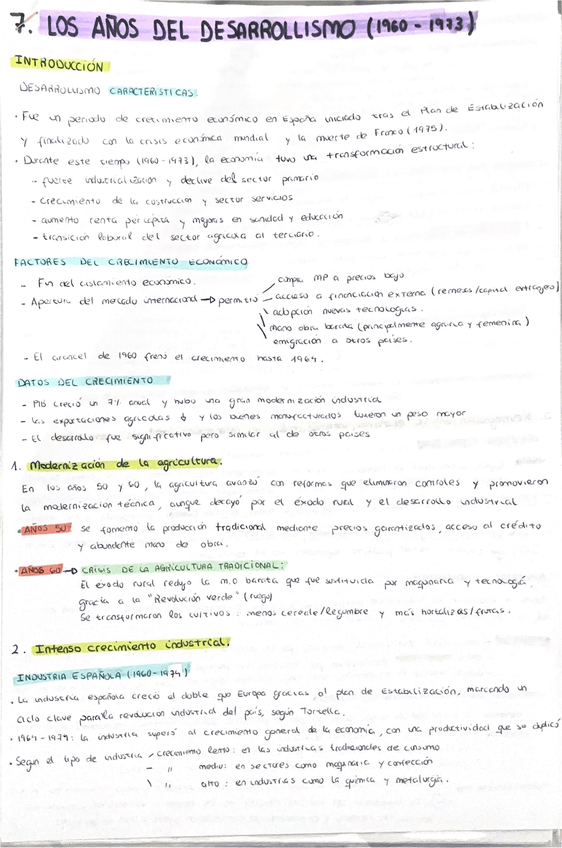 7. LOS AÑOS DEL DESARROLLISMO (1960 - 1973)
INTRODUCCIÓN
DESARROLLISMO CARACTERISTICAS
· Fue un periodo de crecimiento económico en España iniciado tras el Plan de Estabilización
y finalizado con la crisis económica mundial y la muerte de Franco (1975).
· Durante este tiempo (1960-1973), la economía tuvo una transformación estructural:
- fuerte industrialización y declive del sector primario
- crecimiento de la costrucción y sector servicios
- aumento renta per cápita y mejoras en sanidad y educación
- transición laboral del sector agrícola al terciario.
FACTORES DEL CRECIMIENTO ECONÓMICO
- Fin del aislamiento económico.
- Apertura del mercado internacional → permitió
compra MP a precios bajo
acceso a financiación externa (remesas/capital extranjero)
adopción nuevas tecnologías.
mano obra barata (principalmente agraria y femenina)
emigración a otros países.
- El arancel de 1960 freno el crecimiento hasta 1964.
DATOS DEL CRECIMIENTO
- PIB creció un 7% anual y hubo una gran modernización industrial
- las exportaciones agrícolas ↓ y los bienes manufacturados tuvieron un peso mayor
- El desarrollo fue significativo pero similar al de otros países
1. Modernización de la agricultura.
En los años 50 y 60, la agricultura avanzó con reformas que eliminaron controles y promovieron
la modernización técnica, aunque decayó por el éxodo rural y el desarrollo industrial
· AÑOS 50: se fomento la producción tradicional mediante precios garantizados, acceso al crédito
y abundante mano de obra.
· AÑOS 60 → CRISIS DE LA AGRICULTURA TRADICIONAL:
El éxodo rural redujo la m.o barata que fue sustituida por maquinaria y tecnología
gracia a la "Revolución verde" (riego)
Se transformaron los cultivos: menos cereale/legumbre y más hortalizas/frutas.
2. Intenso crecimiento industrial.
INDUSTRIA ESPAÑOLA (1960-1974)
· La industria española creció el doble que Europa gracias al plan de Estabilización, marcando un
ciclo clave para la revolución industrial del país, según Tortella.
· 1964-1974: la industria superó al crecimiento general de la economía, con una productividad que se duplicó
· Según el tipo de industria, crecimiento lento: en las industrias tradicionales de consumo
- " medio: en sectores como maquinaria y confección
\ " alto: en industrias como la química y metalurgia.